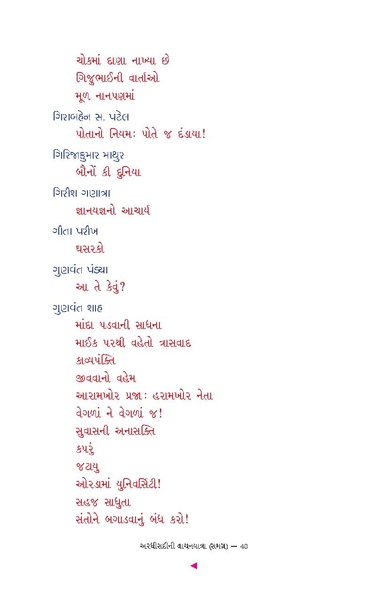 ચોકમાં દાણા નાખ્યા છે
ગિજુભાઈની વાર્તાઓ
મૂળ નાનપણમાં
ગિરાબહેન સ. પટેલ
પોતાનો નિયમઃ પોતે જ દંડાયા!
ગિરિજાકુમાર માથુર
બૌનોં કી દુનિયા
ગિરીશ ગણાત્રા
જ્ઞાનયજ્ઞનો આચાર્ય
ગીતા પરીખ
ઘસરકો
ગુણવંત પંડ્યા
આ તે કેવું?
ગુણવંત શાહ
માંદા પડવાની સાધના
માઈક પરથી વહેતો ત્રાસવાદ
કાવ્યપંક્તિ
જીવવાનો વહેમ
આરામખોર પ્રજા : હરામખોર નેતા
વેગળાં ને વેગળાં જ!
સુવાસની અનાસક્તિ
કપરું
જટાયુ
ઓરડામાં યુનિવર્સિટી!
સહજ સાધુતા
સંતોને બગાડવાનું બંધ કરો!
અરધીસદીની વાચનયાત્રા (સમગ્ર) — 40